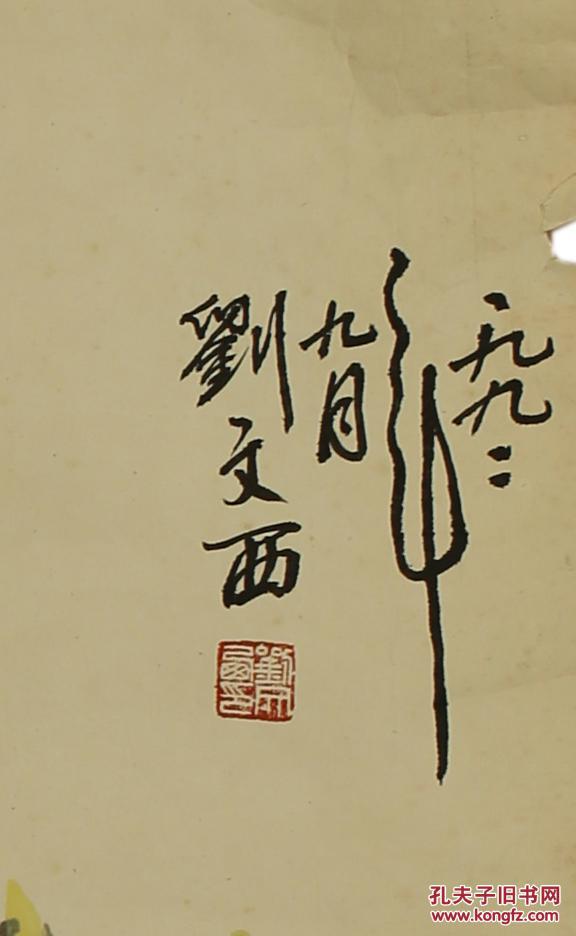 一九九二
年
九月
劉文西
孔夫子旧书网
www.kongfz.com